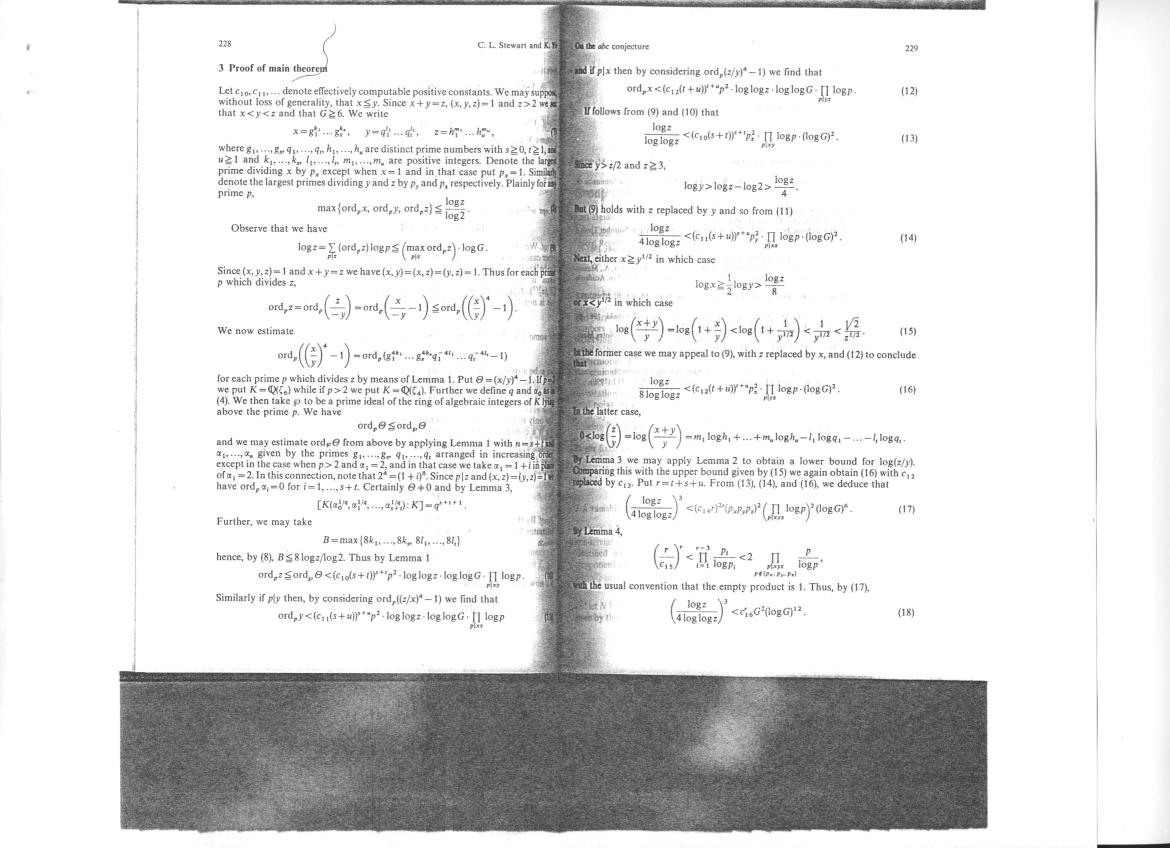 228
C. L. Stewart and K.
3 Proof of main theorem
Let c₁₀, c₁₁, … denote effectively computable positive constants. We may suppose,
without loss of generality, that x≦y. Since x+y=z, (x, y, z)=1 and z>2 we
that x<y<z and that G≧6. We write
x=g₁^{k₁} … g_s^{k_s}, y=q₁^{l₁} … q_t^{l_t}, z=h₁^{m₁} … h_u^{m_u},
where g₁, …, g_s, q₁, …, q_t, h₁, …, h_u are distinct prime numbers with s≧0, t≧1,
u≧1 and k₁, …, k_s, l₁, …, l_t, m₁, …, m_u are positive integers. Denote the largest
prime dividing x by p_x except when x=1 and in that case put p_x=1. Similarly
denote the largest primes dividing y and z by p_y and p_z respectively. Plainly for
prime p,
max{ord_p x, ord_p y, ord_p z} ≦ log z / log 2.
Observe that we have
log z = ∑_{p|z} (ord_p z) log p ≦ (max_{p|z} ord_p z) · log G.
Since (x, y, z)=1 and x+y=z we have (x, y)=(x, z)=(y, z)=1. Thus for each prime
p which divides z,
ord_p z = ord_p (z/−y) = ord_p (x/−y − 1) ≦ ord_p ((x/y)⁴ − 1).
We now estimate
ord_p ((x/y)⁴ − 1) = ord_p (g₁^{4k₁} … g_s^{4k_s} q₁^{−4l₁} … q_t^{−4l_t} − 1)
for each prime p which divides z by means of Lemma 1. Put Θ=(x/y)⁴−1. If
we put K=ℚ(ζ₆) while if p>2 we put K=ℚ(ζ₄). Further we define q and α₀
(4). We then take ℘ to be a prime ideal of the ring of algebraic integers of K lying
above the prime p. We have
ord_p Θ ≦ ord_℘ Θ
and we may estimate ord_℘ Θ from above by applying Lemma 1 with n=s+t
α₁, …, α_n given by the primes g₁, …, g_s, q₁, …, q_t arranged in increasing order
except in the case when p>2 and α₁=2, and in that case we take α₁=1+i in
of α₁=2. In this connection, note that 2⁴=(1+i)⁸. Since p|z and (x, z)=(y, z)=1
have ord_℘ α_i=0 for i=1, …, s+t. Certainly Θ≠0 and by Lemma 3,
[K(α₀^{1/q}, α₁^{1/q}, …, α_{s+t}^{1/q}): K]=q^{s+t+1}.
Further, we may take
B=max{8k₁, …, 8k_s, 8l₁, …, 8l_t}
hence, by (8), B≦8 log z/log 2. Thus by Lemma 1
ord_p z ≦ ord_℘ Θ < (c₁₀(s+t))^{s+t} p² · log log z · log log G · ∏_{p|xy} log p. (10
Similarly if p|y then, by considering ord_p((z/x)⁴−1) we find that
ord_p y < (c₁₁(s+u))^{s+u} p² · log log z · log log G · ∏_{p|xz} log p
On the abc conjecture
229
and if p|x then by considering ord_p(z/y)⁴−1) we find that
ord_p x < (c₁₂(t+u))^{t+u} p² · log log z · log log G · ∏_{p|yz} log p. (12)
If follows from (9) and (10) that
log z / log log z < (c₁₀(s+t))^{s+t} p_z² · ∏_{p|xy} log p · (log G)². (13)
Since y>z/2 and z≧3,
log y > log z − log 2 > log z / 4.
But (9) holds with z replaced by y and so from (11)
log z / 4 log log z < (c₁₁(s+u))^{s+u} p_y² · ∏_{p|xz} log p · (log G)². (14)
Next, either x≧y^{1/2} in which case
log x ≧ 1/2 log y > log z / 8
or x<y^{1/2} in which case
log((x+y)/y) = log(1 + x/y) < log(1 + 1/y^{1/2}) < 1/y^{1/2} < √2/z^{1/2}. (15)
In the former case we may appeal to (9), with z replaced by x, and (12) to conclude
that
log z / 8 log log z < (c₁₂(t+u))^{t+u} p_x² · ∏_{p|yz} log p · (log G)². (16)
In the latter case,
0 < log(z/y) = log((x+y)/y) = m₁ log h₁ + … + m_u log h_u − l₁ log q₁ − … − l_t log q_t.
By Lemma 3 we may apply Lemma 2 to obtain a lower bound for log(z/y).
Comparing this with the upper bound given by (15) we again obtain (16) with c₁₂
replaced by c₁₃. Put r=t+s+u. From (13), (14), and (16), we deduce that
(log z / 4 log log z)³ < (c₁₄r)^{2r} (p_x p_y p_z)² (∏_{p|xyz} log p)² (log G)⁶. (17)
By Lemma 4,
(r/c₁₅)^r < ∏_{i=1}^{r−3} p_i/log p_i < 2 ∏_{p|xyz, p∉{p_x, p_y, p_z}} p/log p,
with the usual convention that the empty product is 1. Thus, by (17),
(log z / 4 log log z)³ < c₁₆^r G² (log G)¹². (18)